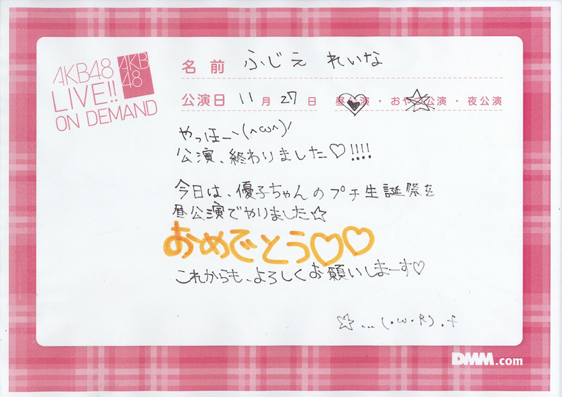 AKB48
LIVE!!
ON DEMAND
AKB
48
名前 ふじえ れいな
公演日 11月27日 昼公演・おやつ公演・夜公演
やっほー＼(^ω^)/
公演、終わりました♡!!!!
今日は、優子ちゃんのプチ生誕祭を
昼公演でやりました☆
おめでとう♡♡
これからも、よろしくお願いしまーす♡
☆...(・ω・R).+
DMM.com